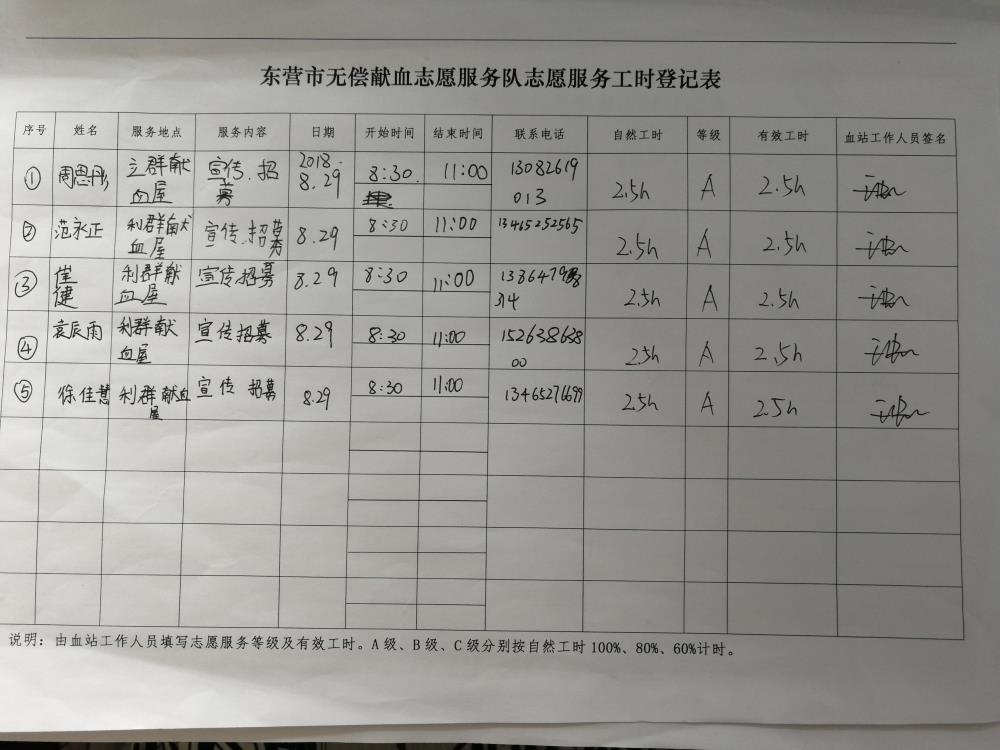 东营市无偿献血志愿服务队志愿服务工时登记表
序号 姓名 服务地点 服务内容 日期 开始时间 结束时间 联系电话 自然工时 等级 有效工时 血站工作人员签名
① 周思彤 立群献血屋 宣传.招募 2018.8.29 8:30 11:00 13082619013 2.5h A 2.5h
② 范永正 利群献血屋 宣传.招募 8.29 8:30 11:00 13465252565 2.5h A 2.5h
③ 健 利群献血屋 宣传招募 8.29 8:30 11:00 2.5h A 2.5h
④ 袁辰雨 利群献血屋 宣传招募 8.29 8:30 11:00 15263863800 2.5h A 2.5h
⑤ 徐佳慧 利群献血屋 宣传 招募 8.29 8:30 11:00 13465276699 2.5h A 2.5h
说明：由血站工作人员填写志愿服务等级及有效工时。A级、B级、C级分别按自然工时100%、80%、60%计时。